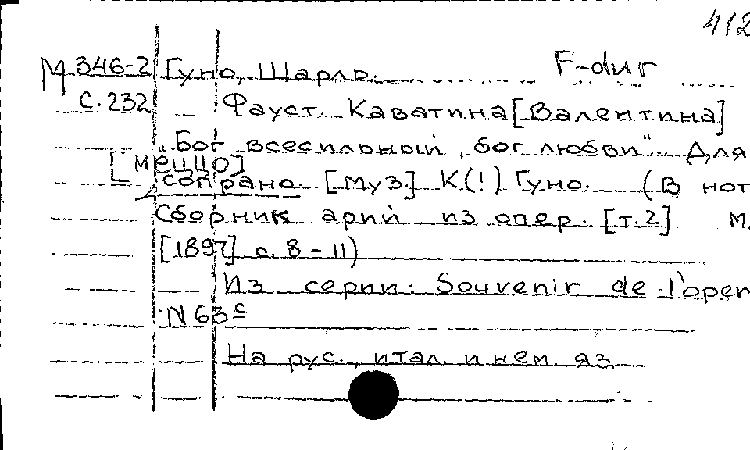 412
М 346-2 Гуно, Шарль. F-dur
с. 232 Фауст. Каватина [Валентина]
"Бог всесильный, бог любви". Для
[меццо]
сопрано. [Муз.] К(!) Гуно. (В нот
сборник арий из опер. [т.2] М.
[1897] с. 8-11)
Из серии: Souvenir de l'oper
N 63 с
На рус., итал. и нем. яз.